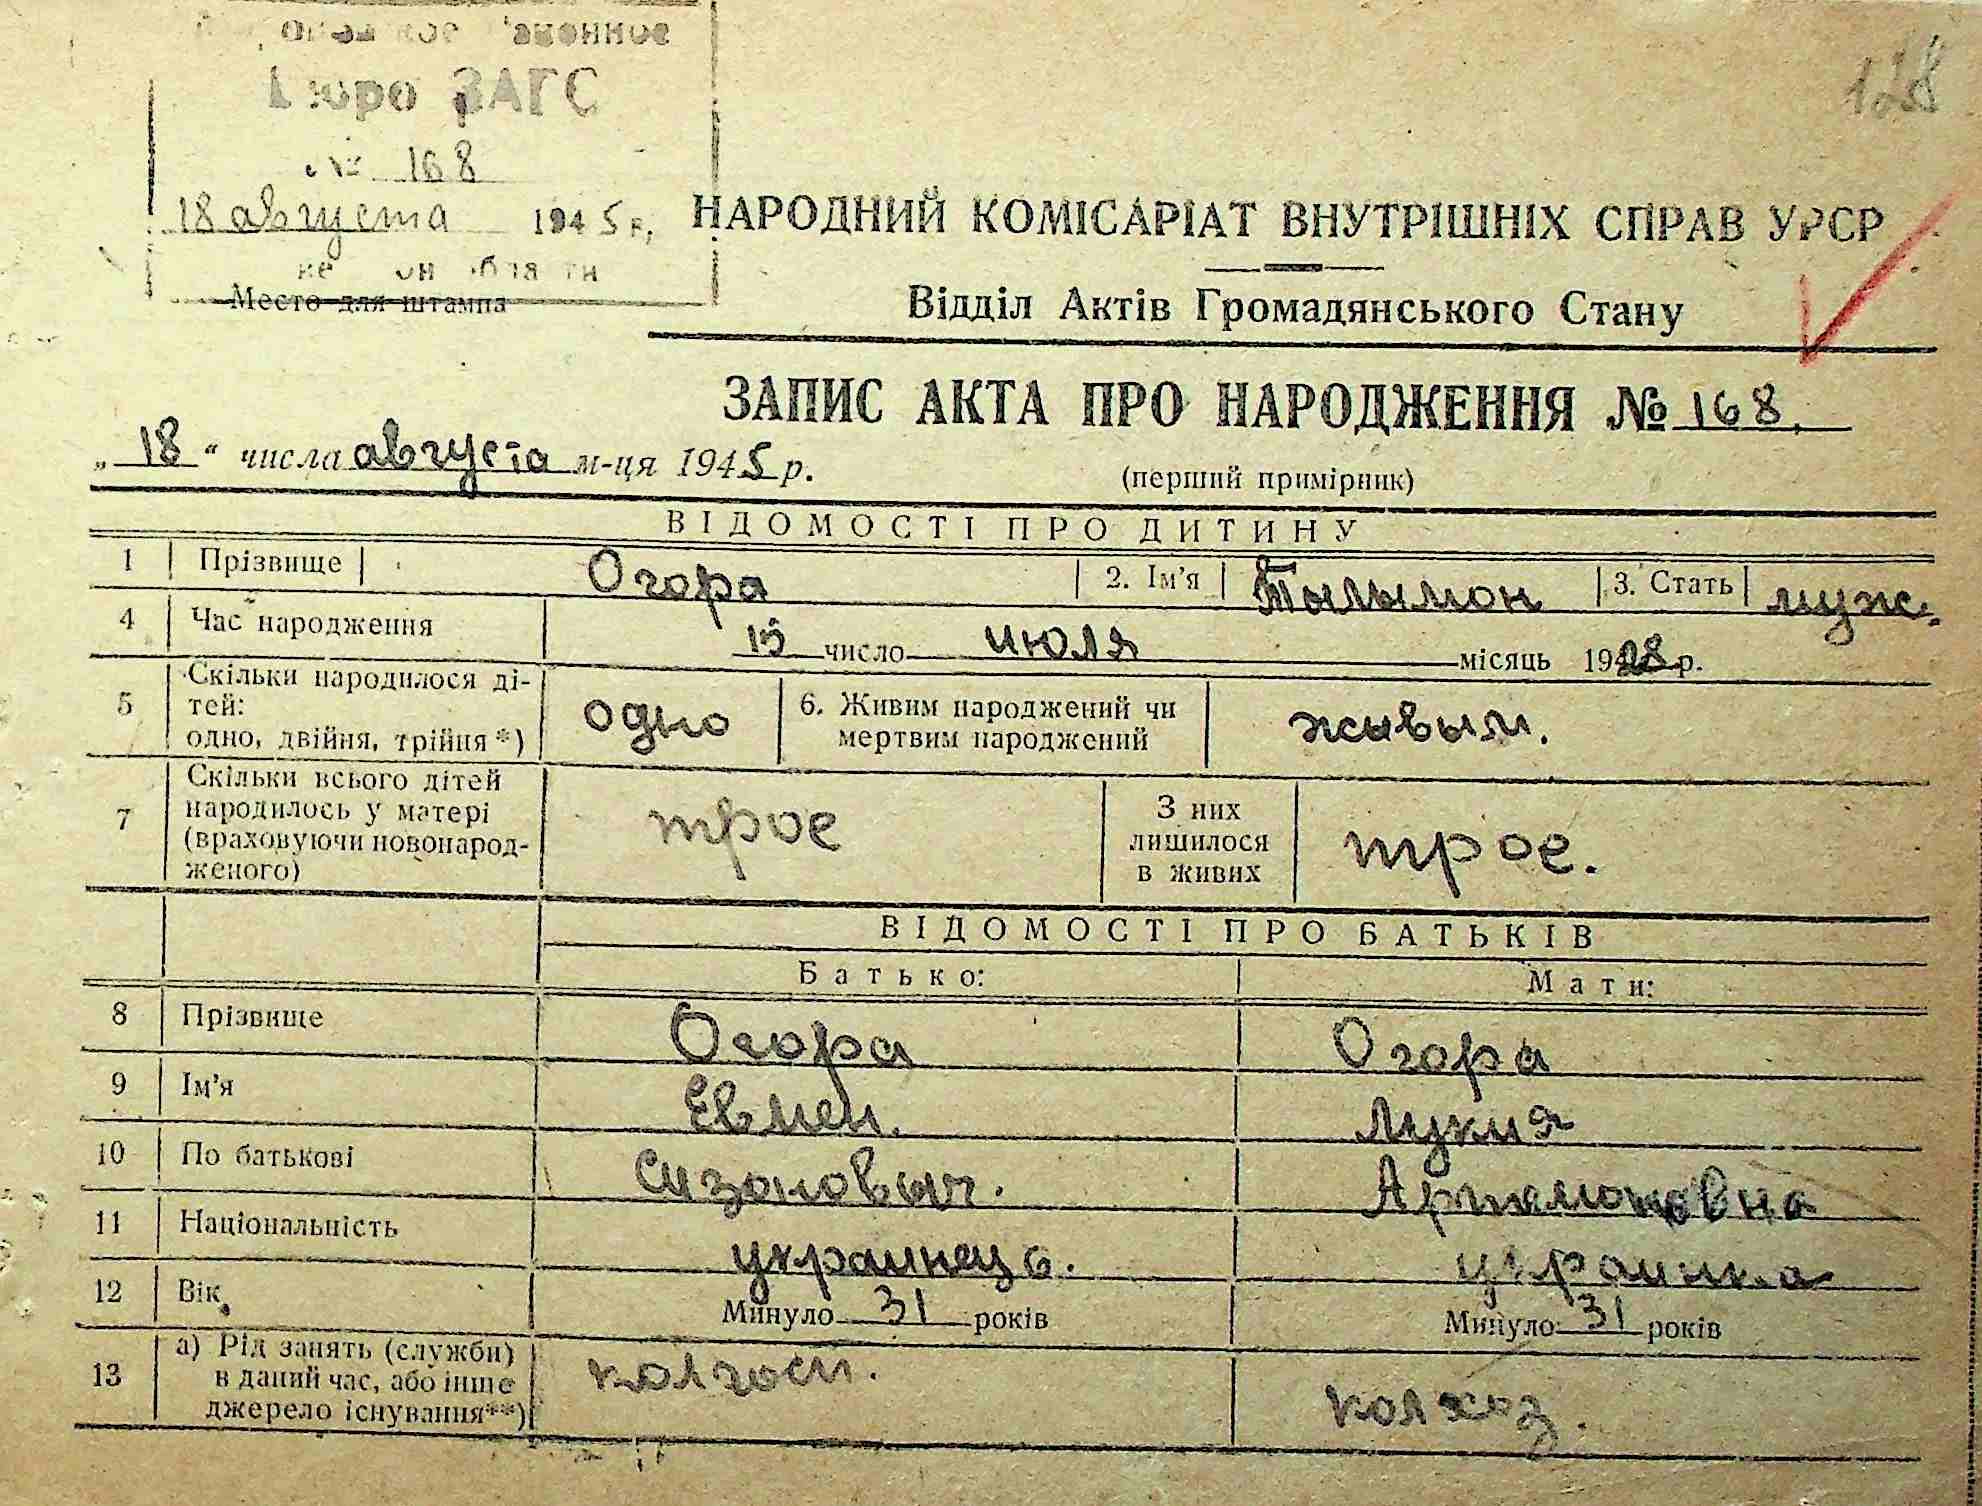 128
Бюро ЗАГС
№ 168
18 августа 1945 г.
Место для штампа
НАРОДНИЙ КОМІСАРІАТ ВНУТРІШНІХ СПРАВ УРСР
Відділ Актів Громадянського Стану
ЗАПИС АКТА ПРО НАРОДЖЕННЯ № 168.
„18“ числа августа м-ця 1945 р.
(перший примірник)
ВІДОМОСТІ ПРО ДИТИНУ
1 Прізвище Огора 2. Ім'я Тылымон 3. Стать муж.
4 Час народження 15 число июля місяць 1928 р.
5 Скільки народилося ді-
тей:
одно, двійня, трійня*) одно 6. Живим народжений чи
мертвим народжений живым.
7 Скільки всього дітей
народилось у матері
(враховуючи новонарод-
женого) трое З них
лишилося
в живих трое.
ВІДОМОСТІ ПРО БАТЬКІВ
Батько: Мати:
8 Прізвище Огора Огора
9 Ім'я Евмен. Лукия
10 По батькові Сизоновыч. Артемоновна
11 Національність украинець. украинка
12 Вік Минуло 31 років Минуло 31 років
13 а) Рід занять (служби)
в даний час, або інше
джерело існування**) колгосп. колхоз.